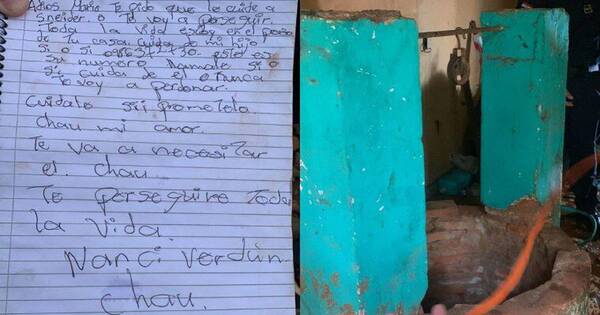 Adios Mario te pido que le cuide a
sneider. o Te voy a perseguir.
Toda la Vida estoy en el pozo
de tu casa. Cuida de mi hijo
si o si este es
su numero llamale si o
si cuida de el o nunca
te voy a perdonar.
Cuidalo sii prometelo.
chau mi amor.
Te va a necesitar
el. chau.
Te perseguire toda
la vida.
Nanci verdun.
chau.